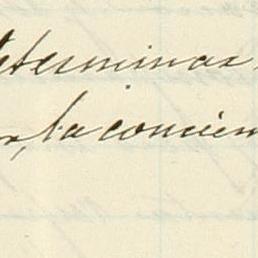 determinar
la concien